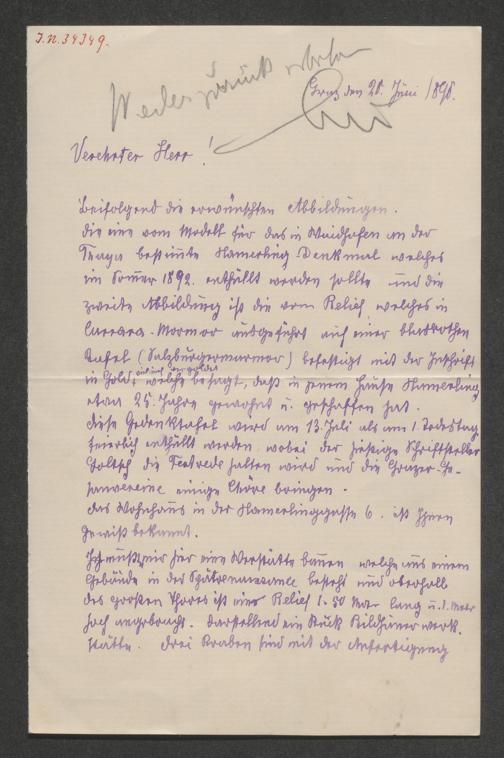 J.N. 34349.
Wieder zurück erbeten
Graz den 20. Juni 1890.
Verehrter Herr!
Beifolgend die erwünschten Abbildungen.
Die eine vom Modell für das in Waidhofen an der
Thaya bestimte Hamerling Denkmal welches
im Somer 1892. enthüllt werden sollte und die
zweite Abbildung ist die vom Relief, welches in
Carrara-Marmor ausgeführt auf einer blassrothen
Tafel (Salzburgermarmor) befestigt mit der Inschrift
in Gold, welche besagt, daß in jenem Hause Hamerling
etwa 25. Jahre gewohnt u. geschaffen hat.
Diese Gedenktafel wird am 13. Juli als am 1. Todestag
feierlich enthüllt werden, wobei der hiesige Schriftsteller
Goltsch die Festrede halten wird und die Grazer-Ge-
sangvereine einige Chöre bringen.
Das Wohnhaus in der Hamerlinggasse 6. ist Ihnen
gewiß bekannt.
Ich mußte mir hier eine Werkstätte bauen welche aus einem
Gebäude in der Spätrenaissance besteht und oberhalb
des großen Thores ist ein Relief 1·50 Meter lang u. 1. Meter
hoch angebracht. Darstellend ein Stück Bildhauerwerk-
stätte. Drei Knaben sind mit der Anfertigung